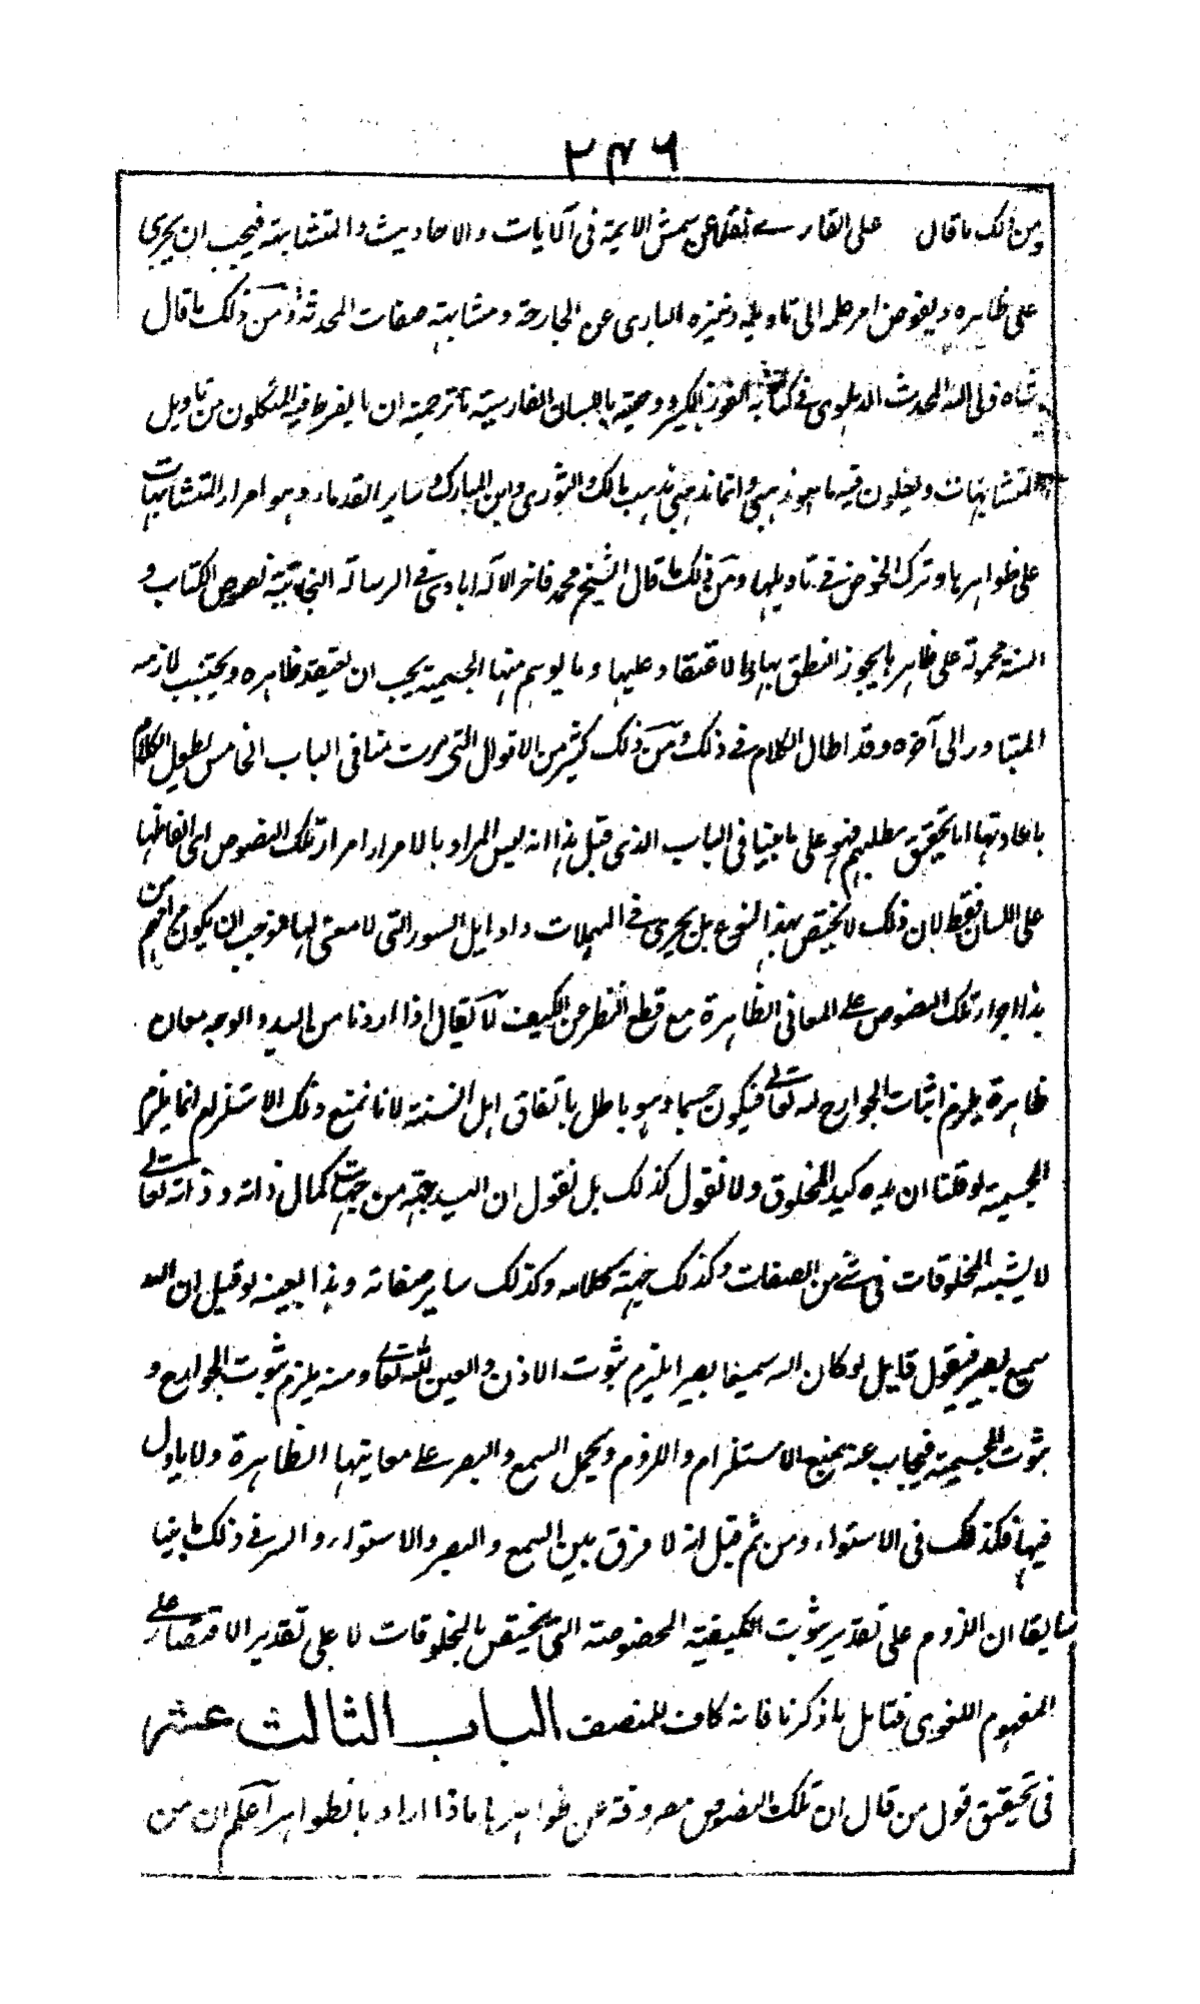 ٢٣٦
ومن ذلك ما قال على القاري نقلا عن شمس الايمة فى الآيات والاحاديث والمتشابهة فيجب ان يجرى
على ظاهره ويفوض امر علمه الى تاويله وتنزه البارى عن الجارحة ومشابهة صفات المحدثة ومن ذلك ما قال
شاه ولى الله المحدث الدهلوى فى كتابه الفوز الكبير ووصيته باللسان الفارسية ما ترجمته ان ما يفرط فيه المتكلمون من تاويل
المتشابهات ويغلون فيه ما هو مذهبى وانما مذهبى مذهب مالك والثورى وابن المبارك وساير القدماء وهو امرار المتشابهات
على ظواهرها وترك الخوض فى تاويلها ومن ذلك ما قال الشيخ محمد فاخر الاله ابادى فى الرسالة النجاتية نصوص الكتاب و
السنة محمولة على ظاهرها يجوز النطق بها والاعتقاد عليها وما يوهم منها الجسمية يجب ان يعتقد ظاهره ويجتنب لازمه
المتبادر الى آخره وقد اطال الكلام فى ذلك ومن ذلك كثير من الاقوال التى مرت منا فى الباب الخامس يطول الكلام
باعادتها اما تحقيق مطلبهم فهو على ما بينا فى الباب الذى قبل هذا انه ليس المراد بالامرار امرار تلك النصوص اى الفاظها
على اللسان فقط لان ذلك لا يختص بهذا النوع بل يجرى فى المهملات واوايل السور التى لا معنى لها فوجب ان يكون مرادهم من
هذا اجراء تلك النصوص على المعانى الظاهرة مع قطع النظر عن الكيف لا يقال اذا اردنا من اليد والوجه معان
ظاهرة يلزم اثبات الجوارح له تعالى فيكون جسما وهو باطل باتفاق اهل السنة لانا نمنع ذلك الاستلزام انما يلزم
الجسمية لو قلنا ان يده كيد المخلوق ولا نقول كذلك بل نقول ان اليد جهة من جهات كمال ذاته وذاته تعالى
لا يشبه المخلوقات فى شئ من الصفات وكذلك جهة كلامه وكذلك ساير صفاته وهذا بعينه لو قيل ان الله
سميع بصير فيقول قايل لو كان الله سميعا بصيرا يلزم ثبوت الاذن والعين لله تعالى ومنه يلزم ثبوت الجوارح و
ثبوت الجسمية فيجاب عنه بمنع الاستلزام واللزوم ويحمل السمع والبصر على معانيها الظاهرة ولا ياول
فيها فكذلك فى الاستواء ومن ثم قيل انه لا فرق بين السمع والبصر والاستواء والسر فى ذلك ما بينا
سابقا ان اللزوم على تقدير ثبوت الكيفية المخصوصة التى يختص بالمخلوقات لا على تقدير الاقتصار على
المفهوم اللغوى فتامل ما ذكرنا فانه كاف للمنصف الباب الثالث عشر
فى تحقيق قول من قال ان تلك النصوص مصروفة عن ظواهرها ماذا اراد بالظواهر اعلم ان من